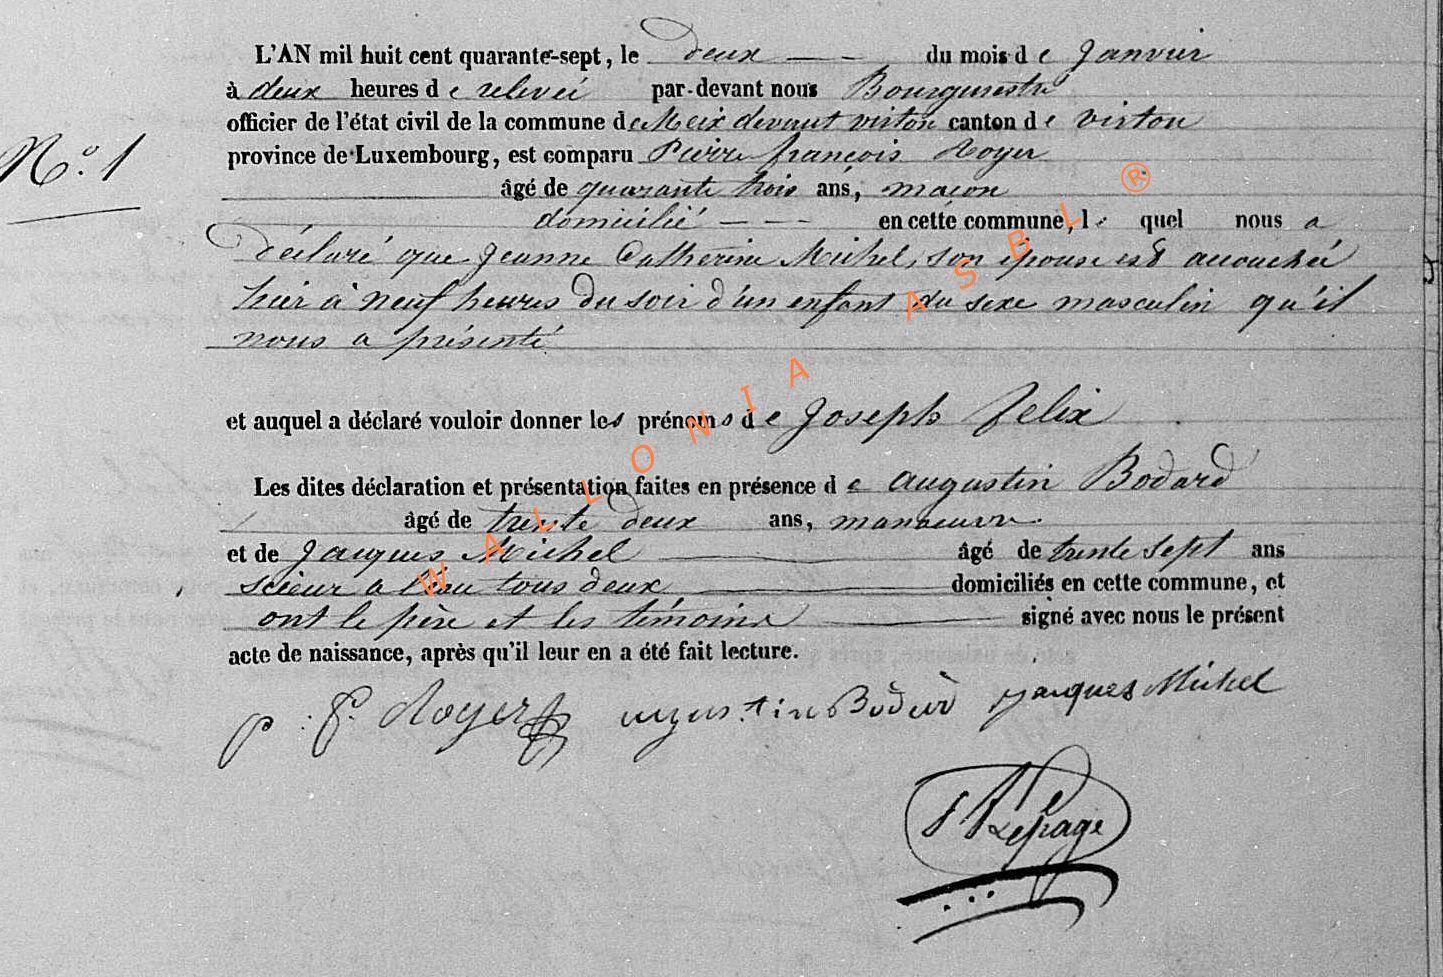 L'AN mil huit cent quarante-sept, le deux du mois de Janvier
à deux heures de relevée par-devant nous Bourguestre
officier de l'état civil de la commune de Meix devant virton canton de virton
N.° 1
province de Luxembourg, est comparu Pierre françois Royer
âgé de quarante trois ans, maçon
domicilié en cette commune, le quel nous a
déclaré que Jeanne Catherine Michel, son épouse est accouchée
hier à neuf heures du soir d'un enfant du sexe masculin qu'il
nous a présenté
et auquel a déclaré vouloir donner les prénoms de Joseph felix
Les dites déclaration et présentation faites en présence de augustin Bodard
âgé de trente deux ans, manoeuvre
et de Jacques Michel âgé de trente sept ans
scieur a l'eau tous deux domiciliés en cette commune, et
ont le père et les témoins signé avec nous le présent
acte de naissance, après qu'il leur en a été fait lecture.
p. f. Royer augustin Jacques Michel
Lepage
WALLONIA ASBL ®